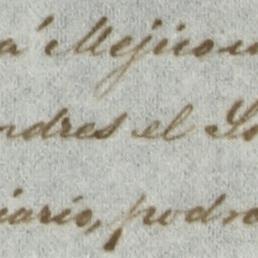 á Mejico
ndres el
iario, podra